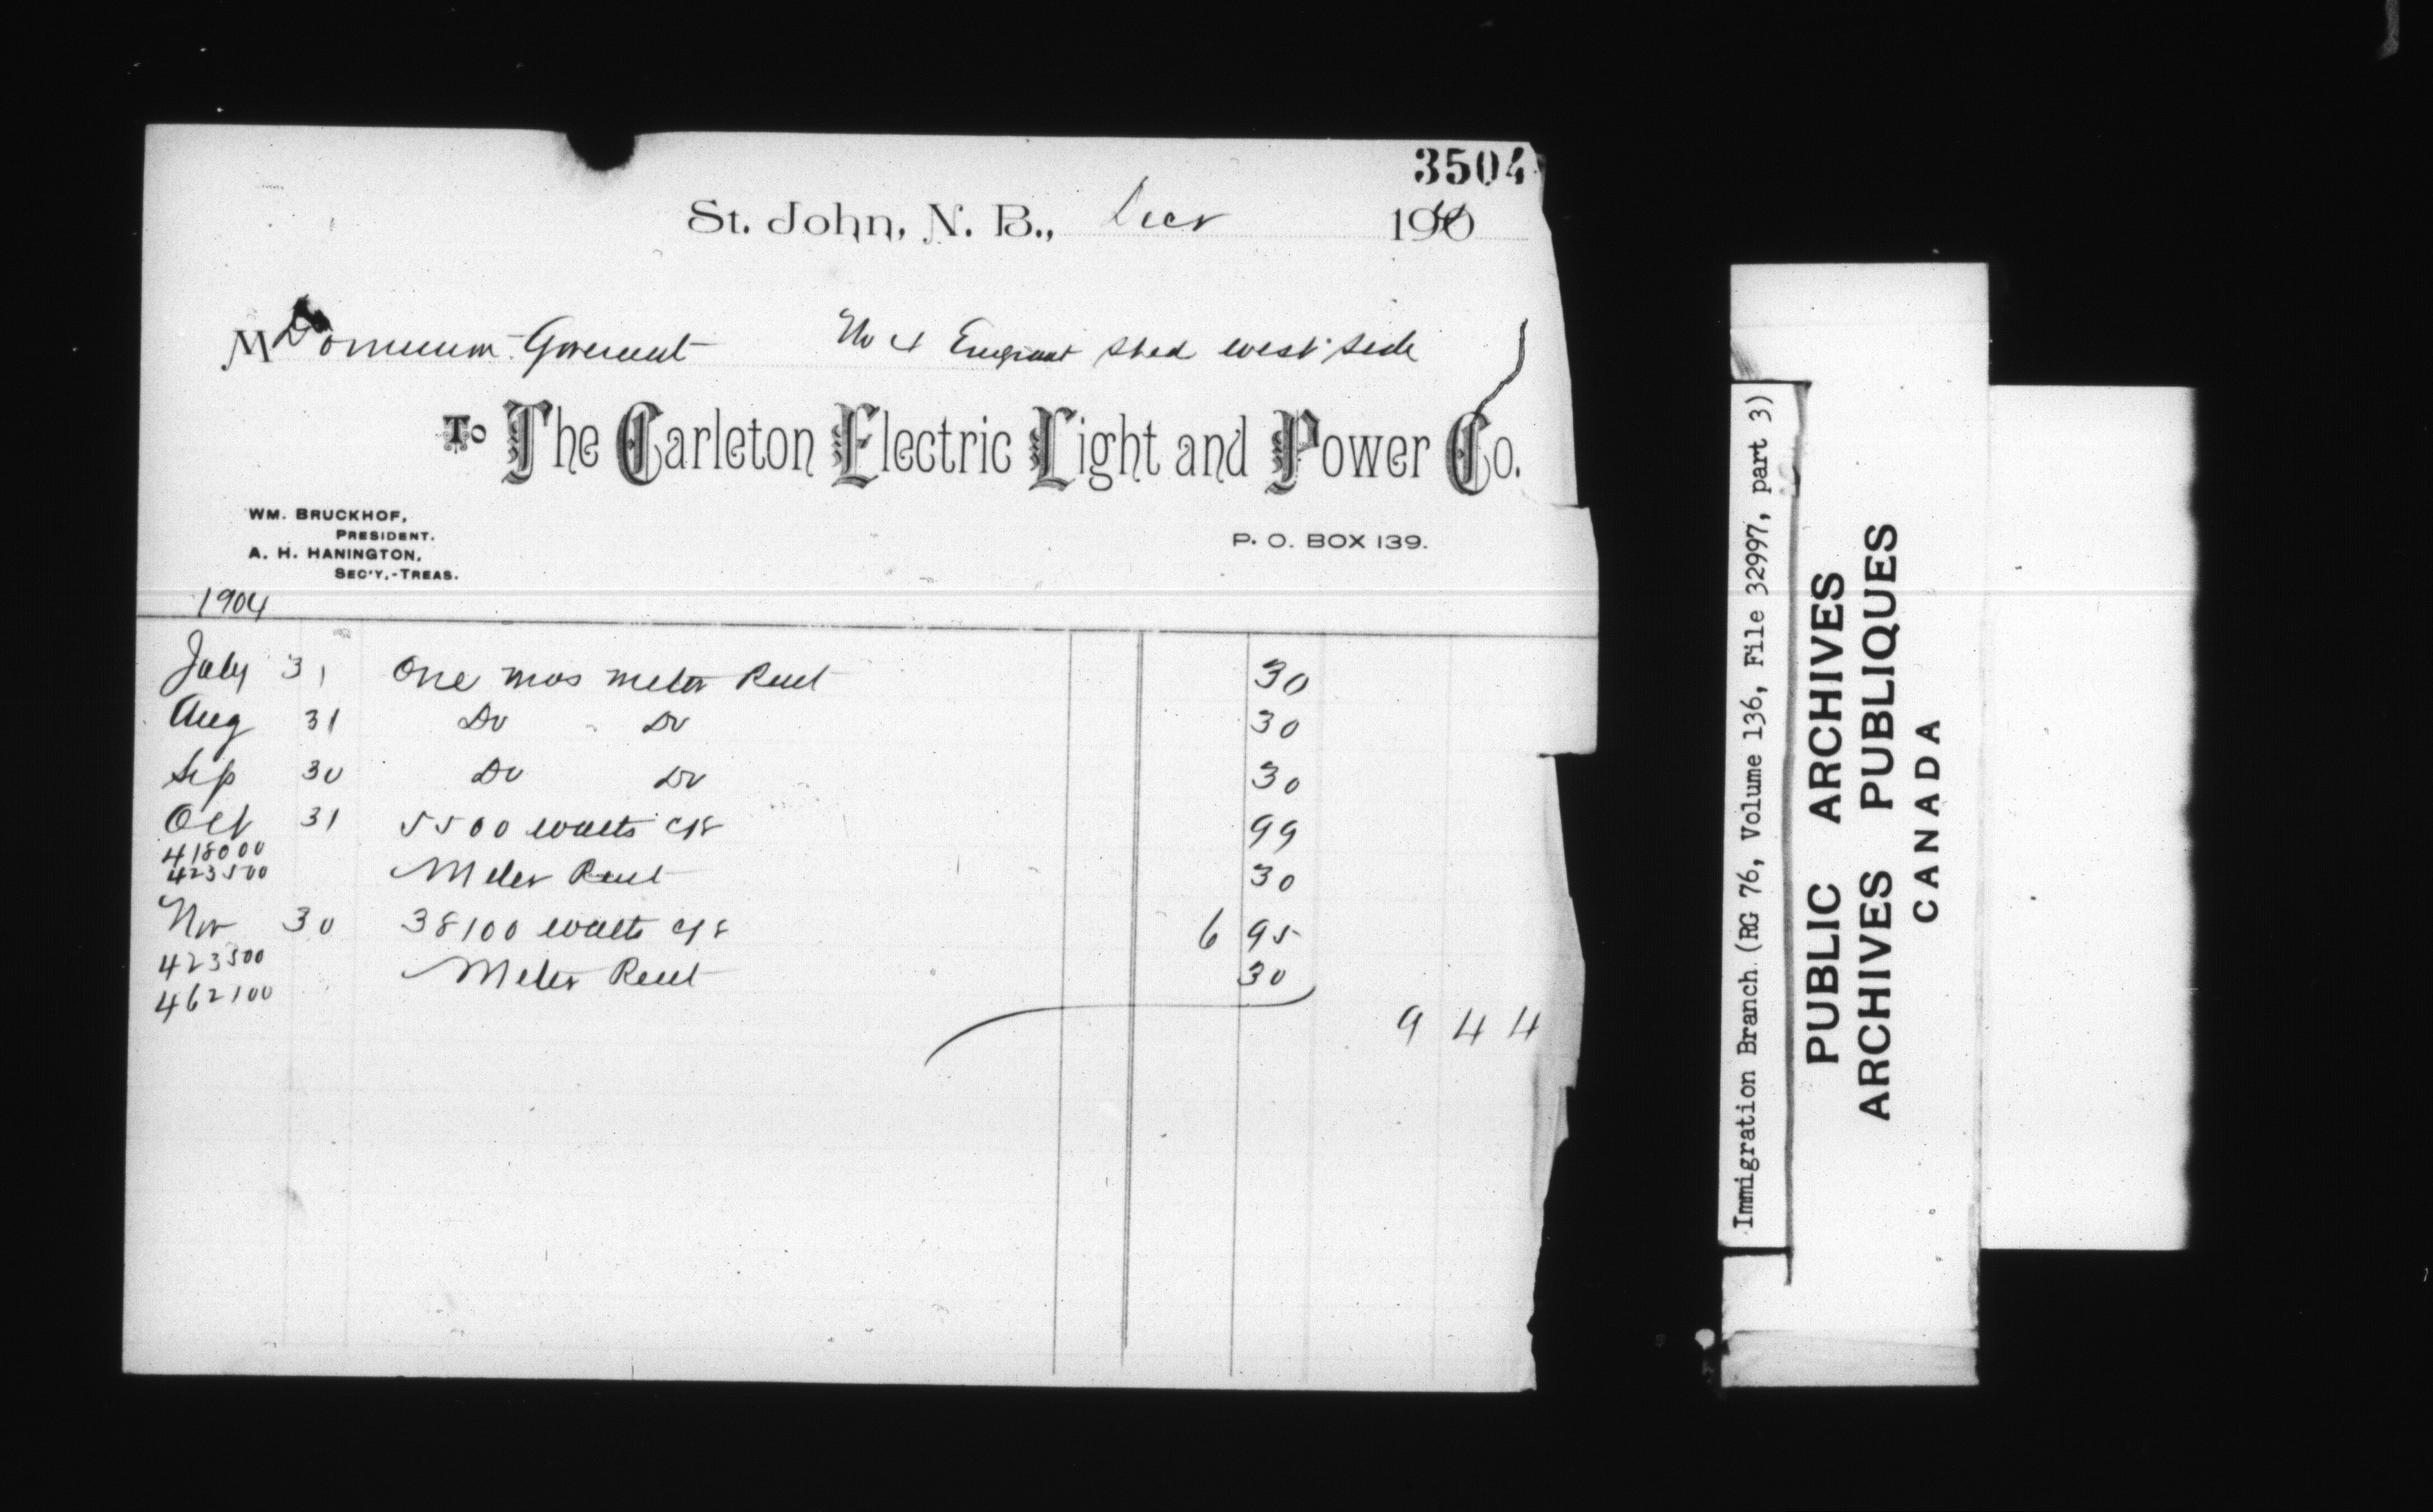 3504
St. John, N. B., Decr 1904
M Dominion Goverment No 4 Emigrant Shed west side
To The Carleton Electric Light and Power Co.
WM. BRUCKHOF,
PRESIDENT.
A. H. HANINGTON,
SEC'Y,-TREAS.
P. O. BOX 139.
1904
July 31 One mos meter Rent 30
Aug 31 Do Do 30
Sep 30 Do Do 30
Oct 31 5500 watts 99
418000
423500 Meter Rent 30
Nov 30 38100 watts 6 95
423500 Meter Rent 30
462100
9 44
Immigration Branch (RG 76, Volume 136, File 32997, part 3)
PUBLIC ARCHIVES
ARCHIVES PUBLIQUES
CANADA